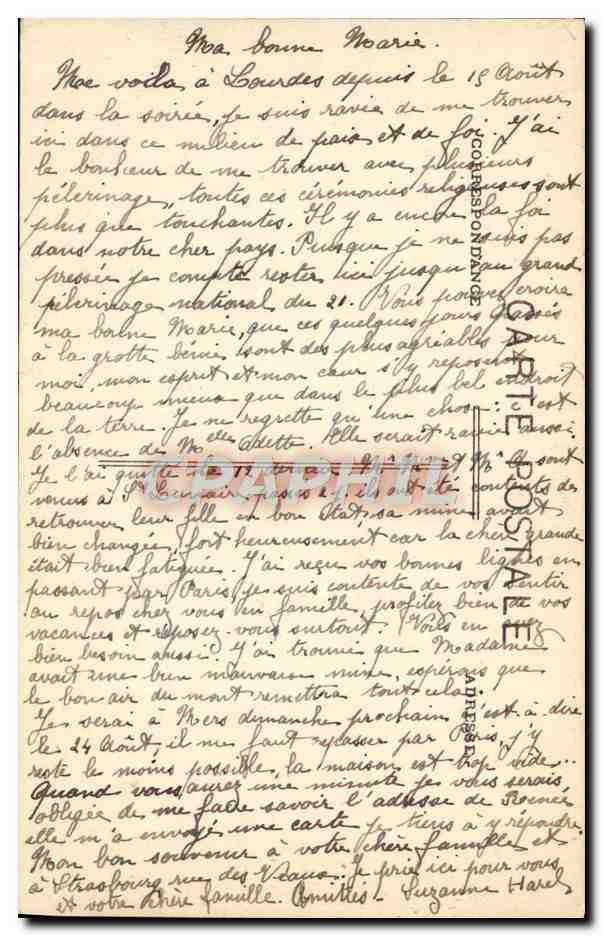 Ma bonne Marie.
Me voila à Lourdes depuis le 15 Août
dans la soirée, je suis ravie de me trouver
ici dans ce milieu de paix et de foi. J'ai
le bonheur de me trouver avec plusieurs
pélerinage, toutes ces cérémonies religieuses sont
plus que touchantes. Il y a encore la foi
dans notre cher pays. Puisque je ne suis pas
pressée je compte rester ici jusqu'au grand
pélerinage national du 21. Vous pouvez croire
ma bonne Marie, que ces quelques jours passés
à la grotte bénie sont des plus agréables pour
moi, mon esprit et mon cœur s'y reposent
beaucoup mieux que dans le plus bel endroit
de la terre. Je ne regrette qu'une chose : c'est
l'absence de Melle Odette. Elle serait ravie aussi.
Je l'ai quitté le 12 dernier, et sont
venus à St Lunaire passer 2 j. ils ont été contents de
retrouver leur fille en bon état, sa mine avait
bien changée, fort heureusement car la chère grande
était bien fatiguée. J'ai reçu vos bonnes lignes en
passant par Paris, je suis contente de vos sentir
au repos chez vous en famille, profitez bien de vos
vacances et reposez-vous surtout. Vous en avez
bien besoin aussi. J'ai trouvé que Madame
avait une bien mauvaise mine, espérons que
le bon air du mont remettra tout cela.
Je serai à Mers dimanche prochain, c'est à dire
le 24 Août, il me faut repasser par Paris, j'y
reste le moins possible, la maison est trop vide...
Quand vous aurez une minute je vous serais
obligée de me faire savoir l'adresse de Renée
elle m'a envoyé une carte je tiens à y répondre.
Mon bon souvenir à votre chère famille et
à Strasbourg rue des Veaux. Je prie ici pour vous
et votre chère famille. Amitiés. Suzanne Harel
CORRESPONDANCE
CARTE POSTALE
ADRESSE
CPAPHIL